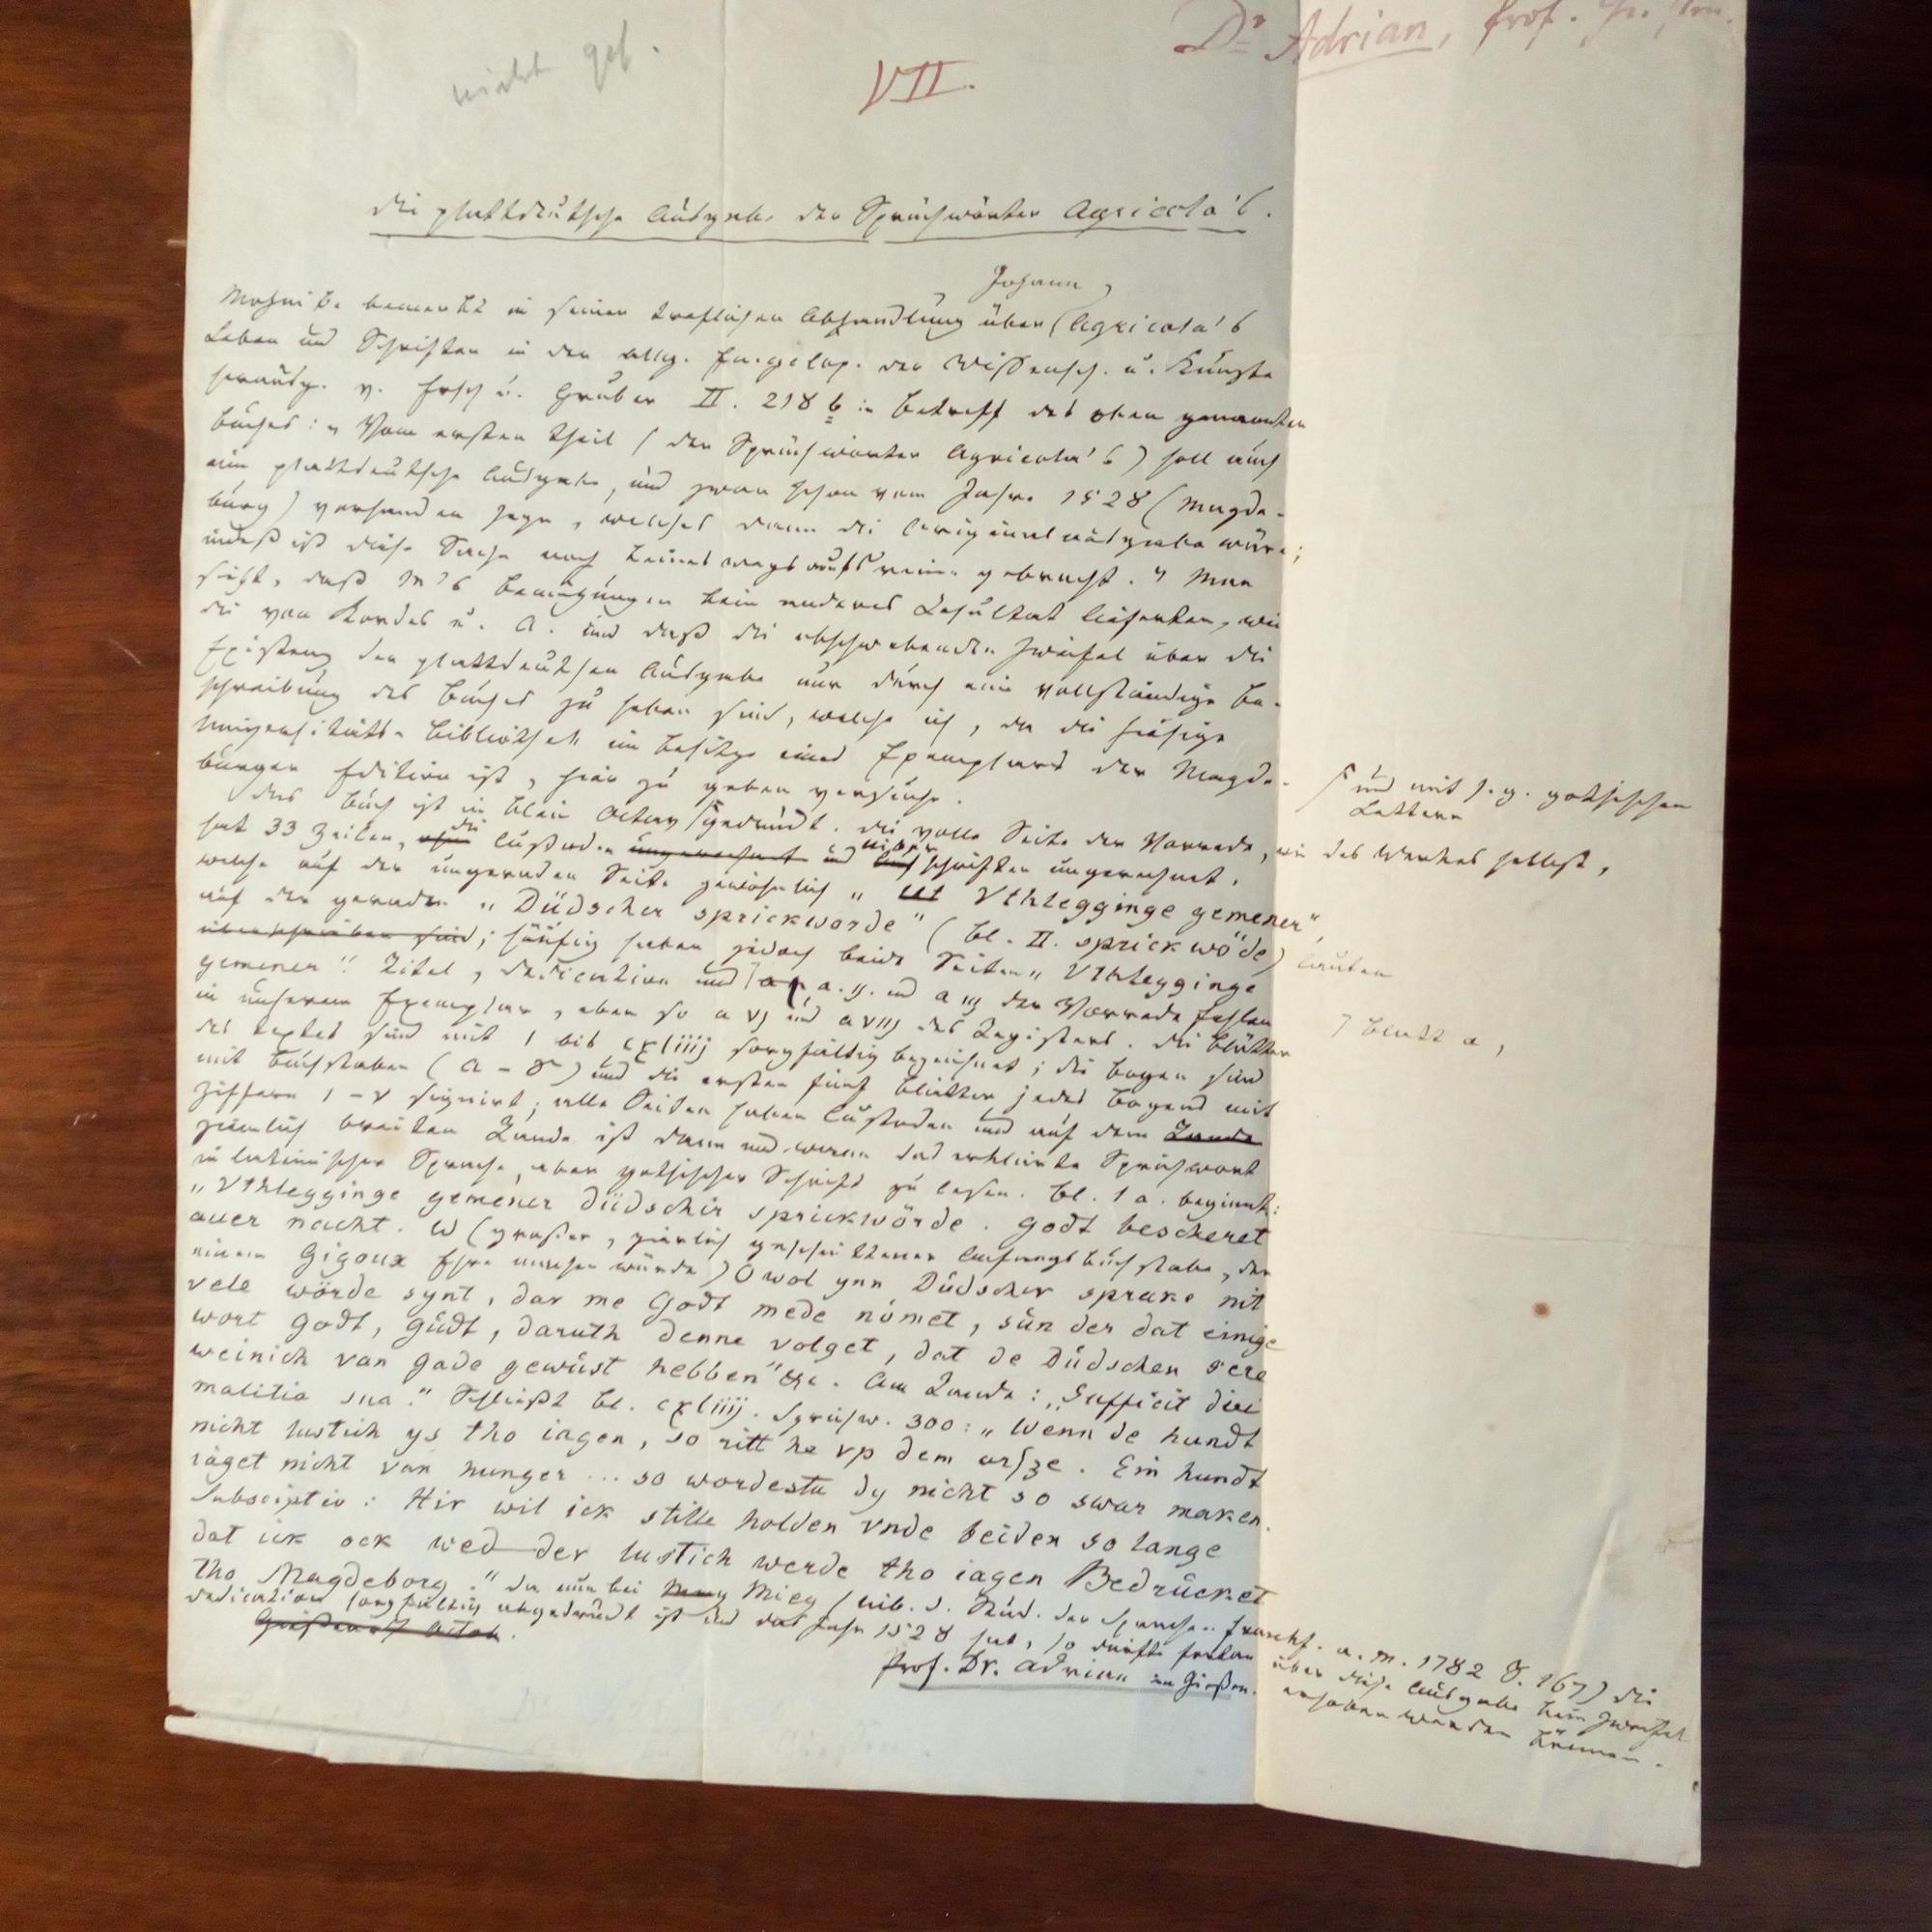 nicht gef.
Dr Adrian, Prof.
VII.
Die plattdeutsche Ausgabe der Sprüchwörter Agricola's.
Johann
Mohnike bemerkt in seiner treflichen Abhandlung über Agricola's
Leben und Schriften in der allg. Encyclop. der Wissensch. u. Künste
herausg. v. Ersch u. Gruber II. 218 b in Betreff des oben genannten
Buches: „Vom ersten Theil (der Sprüchwörter Agricola's) soll auch
eine plattdeutsche Ausgabe, und zwar schon vom Jahre 1528 (Magde-
burg) vorhanden seyn, welches dann die Originalausgabe wäre;
indeß ist diese Sache noch keinesweges aufs reine gebracht.“ Man
sieht, daß M's Bemühungen kein anderes Resultat lieferten, wie
die von Kordes u. A. und daß die obschwebenden Zweifel über die
Existenz der plattdeutschen Ausgabe nur durch eine vollständige Be-
schreibung des Buches zu heben sind, welche ich, da die hiesige
Universitäts-Bibliothek im Besitze eines Exemplares der Magde-
burger Edition ist, hier zu geben versuche.
Das Buch ist in klein Octav gedruckt. Die volle Seite der Vorrede, wie des Werkes selbst,
und mit s. g. gothischen
Lettern
hat 33 Zeilen, die Custoden ungerechnet und Ueberschriften ungerechnet,
welche auf der ungeraden Seite gewöhnlich „Vthlegginge gemener“,
auf der geraden „Düdscher sprickworde“ (Bl. II. sprickwöde) lauten
überschrieben sind; häufig haben jedoch beide Seiten „Vthlegginge
gemener“. Titel, Dedication und Blatt a, a ij. und a iij der Vorrede fehlen
in unserem Exemplar, eben so a vj und a viij des Registers. Die Blätter
des Textes sind mit 1 bis cxliiij sorgfältig bezeichnet; die Bogen sind
mit Buchstaben (A – S) und die ersten fünf Blätter jedes Bogens mit
Ziffern 1 – v signirt; alle Seiten haben Custoden und auf dem Rande
ziemlich breiten Rande ist dann und wann das erklärte Sprüchwort
in lateinischer Sprache, aber gothischer Schrift zu lesen. Bl. 1 a. beginnt:
„Vthlegginge gemener düdscher sprickwörde. Godt bescheret
auer nacht. W (großer, zierlich geschnittener Anfangsbuchstabe, der
einem Gigoux Ehre machen würde) Owol ynn Düdscher sprake nit
vele wörde synt, dar me Godt mede nömet, sün der dat einige
wort Godt, güdt, daruth denne volget, dat de Düdschen sere
weinich van Gade gewüst hebben“ &c. Am Rande: „Sufficit diei
malitia sua.“ Schließt Bl. cxliiij. Sprüchw. 300: „Wenn de hundt
nicht lustich ys tho iagen, so ritt he vp dem arsze. Ein hundt
iaget nicht van hunger ... so wordestu dy nicht so swar maken.
Subscriptio: Hir wil ick stille holden vnde beiden so lange
dat ick ock wed der lustich werde tho iagen Bedrücket
tho Magdeborg.“ Da nun bei Mieg (üib. d. Stud. der Sprache. Frankf. a. M. 1782 S. 167) die
Dedication sorgfältig abgedruckt ist und das Jahr 1528 hat, so dürfte fortan über diese Ausgabe kein Zweifel
erhoben werden können.
Prof. Dr. Adrian in Gießen.